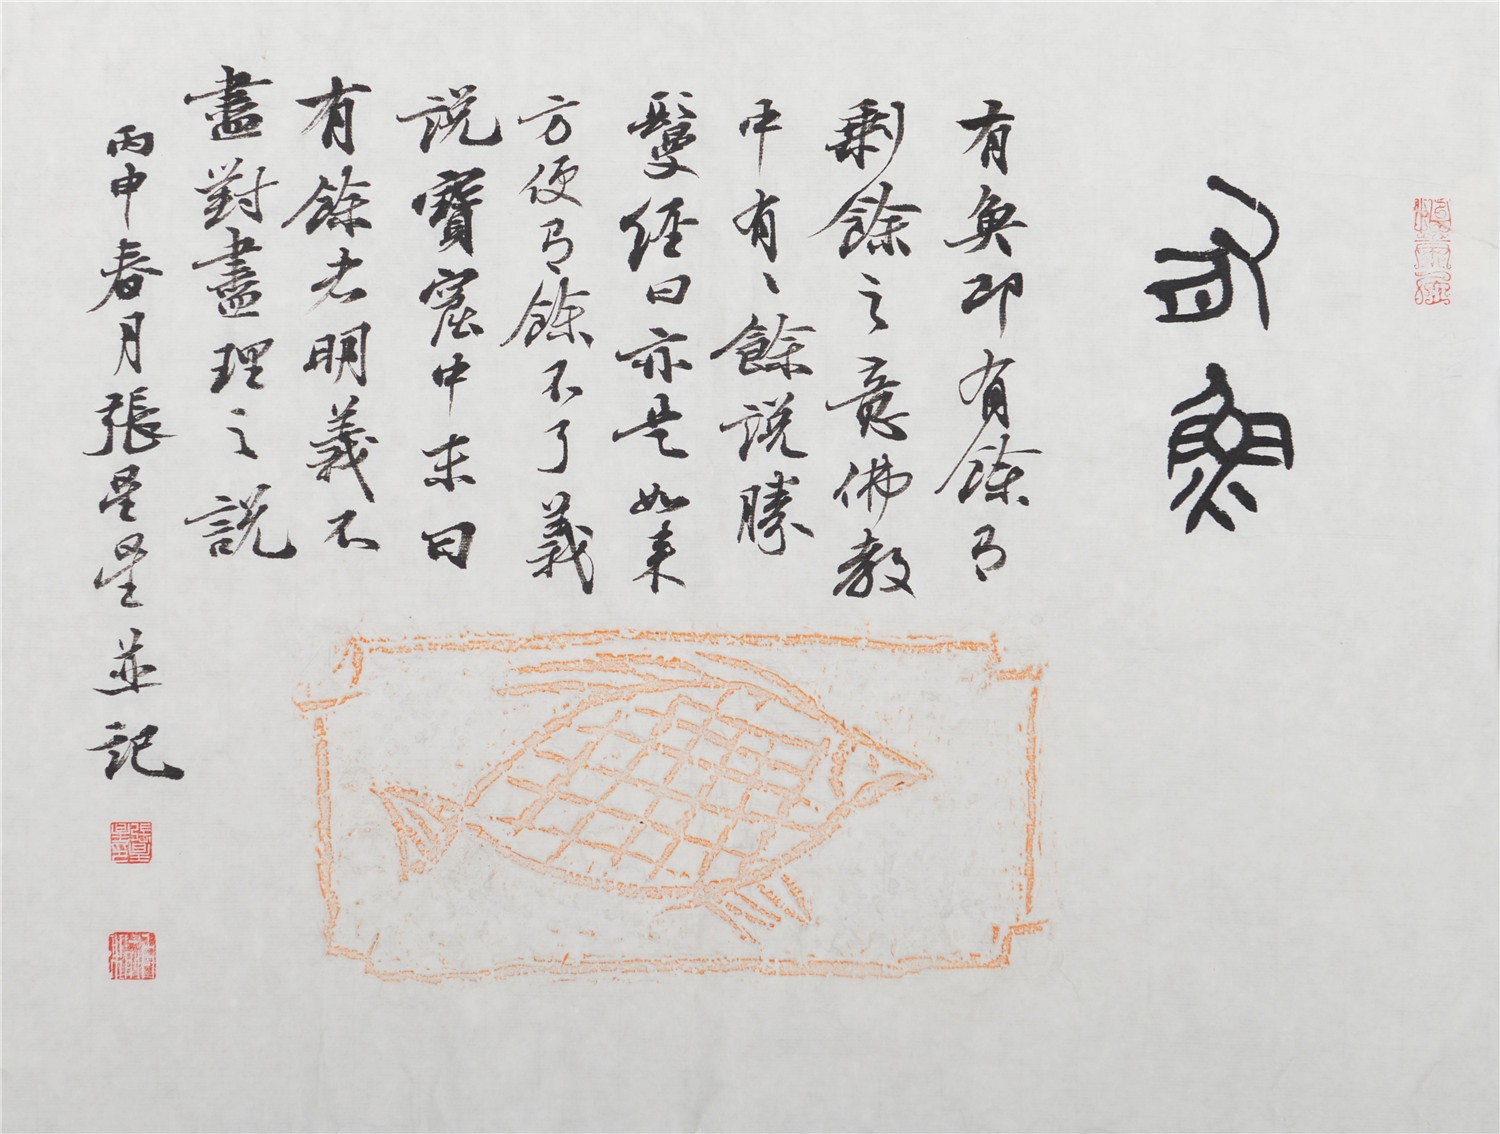 有魚
有魚即有餘有
剩餘之意佛教
中有〻餘説勝
鬘經曰亦是如来
方便有餘不了義
説寶窟中末曰
有餘者明義不
盡對盡理之説
丙申春月張星星並記